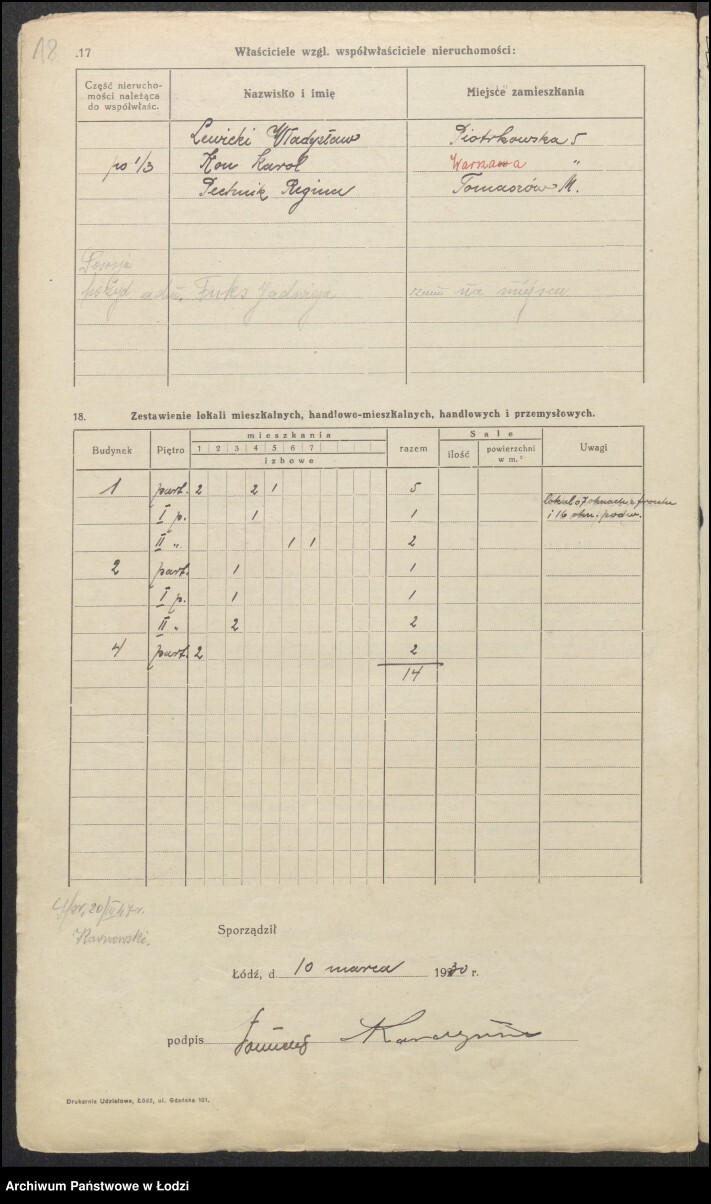 18
.17 Właściciele wzgl. współwłaściciele nieruchomości:
Część nierucho-
mości należąca
do współwłaśc.
Nazwisko i imię
Miejsce zamieszkania
Lewicki Władysław Piotrkowska 5
po 1/3 Kon Karol Warszawa "
Pechnik Regina Tomaszów M.
adm. Fuks Jadwiga zam na miejscu
18. Zestawienie lokali mieszkalnych, handlowo-mieszkalnych, handlowych i przemysłowych.
Budynek Piętro mieszkania razem Sale Uwagi
1 2 3 4 5 6 7
izbowe
ilość powierzchni
w m.²
1 part. 2 2 1 5 lokal o 7 oknach z frontu
I p. 1 1 i 16 okn. podw.
II " 1 1 2
2 part. 1 1
I p. 1 1
II " 2 2
4 part. 2 2
14
Spr. 20/III 47 r.
Sporządził
Łódź, d. 10 marca 1930 r.
podpis
Drukarnia Udziałowa, Łódź, ul. Gdańska 101.
Archiwum Państwowe w Łodzi